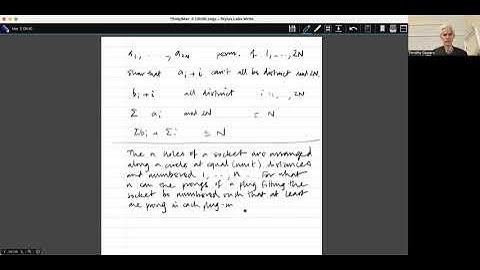 a₁, ..., a₂ₙ perm. of 1, ..., 2N
Show that aᵢ + i can't all be distinct mod 2N.
bᵢ + i all distinct i = 1, ..., 2N
Σ aᵢ mod 2N ≡ N
Σbᵢ + Σi ≡ N
The n holes of a socket are arranged
along a circle at equal (unit) distances
and numbered 1, ..., n. For what
n can the prongs of a plug fitting the
socket be numbered such that at least
one prong in each plug-in